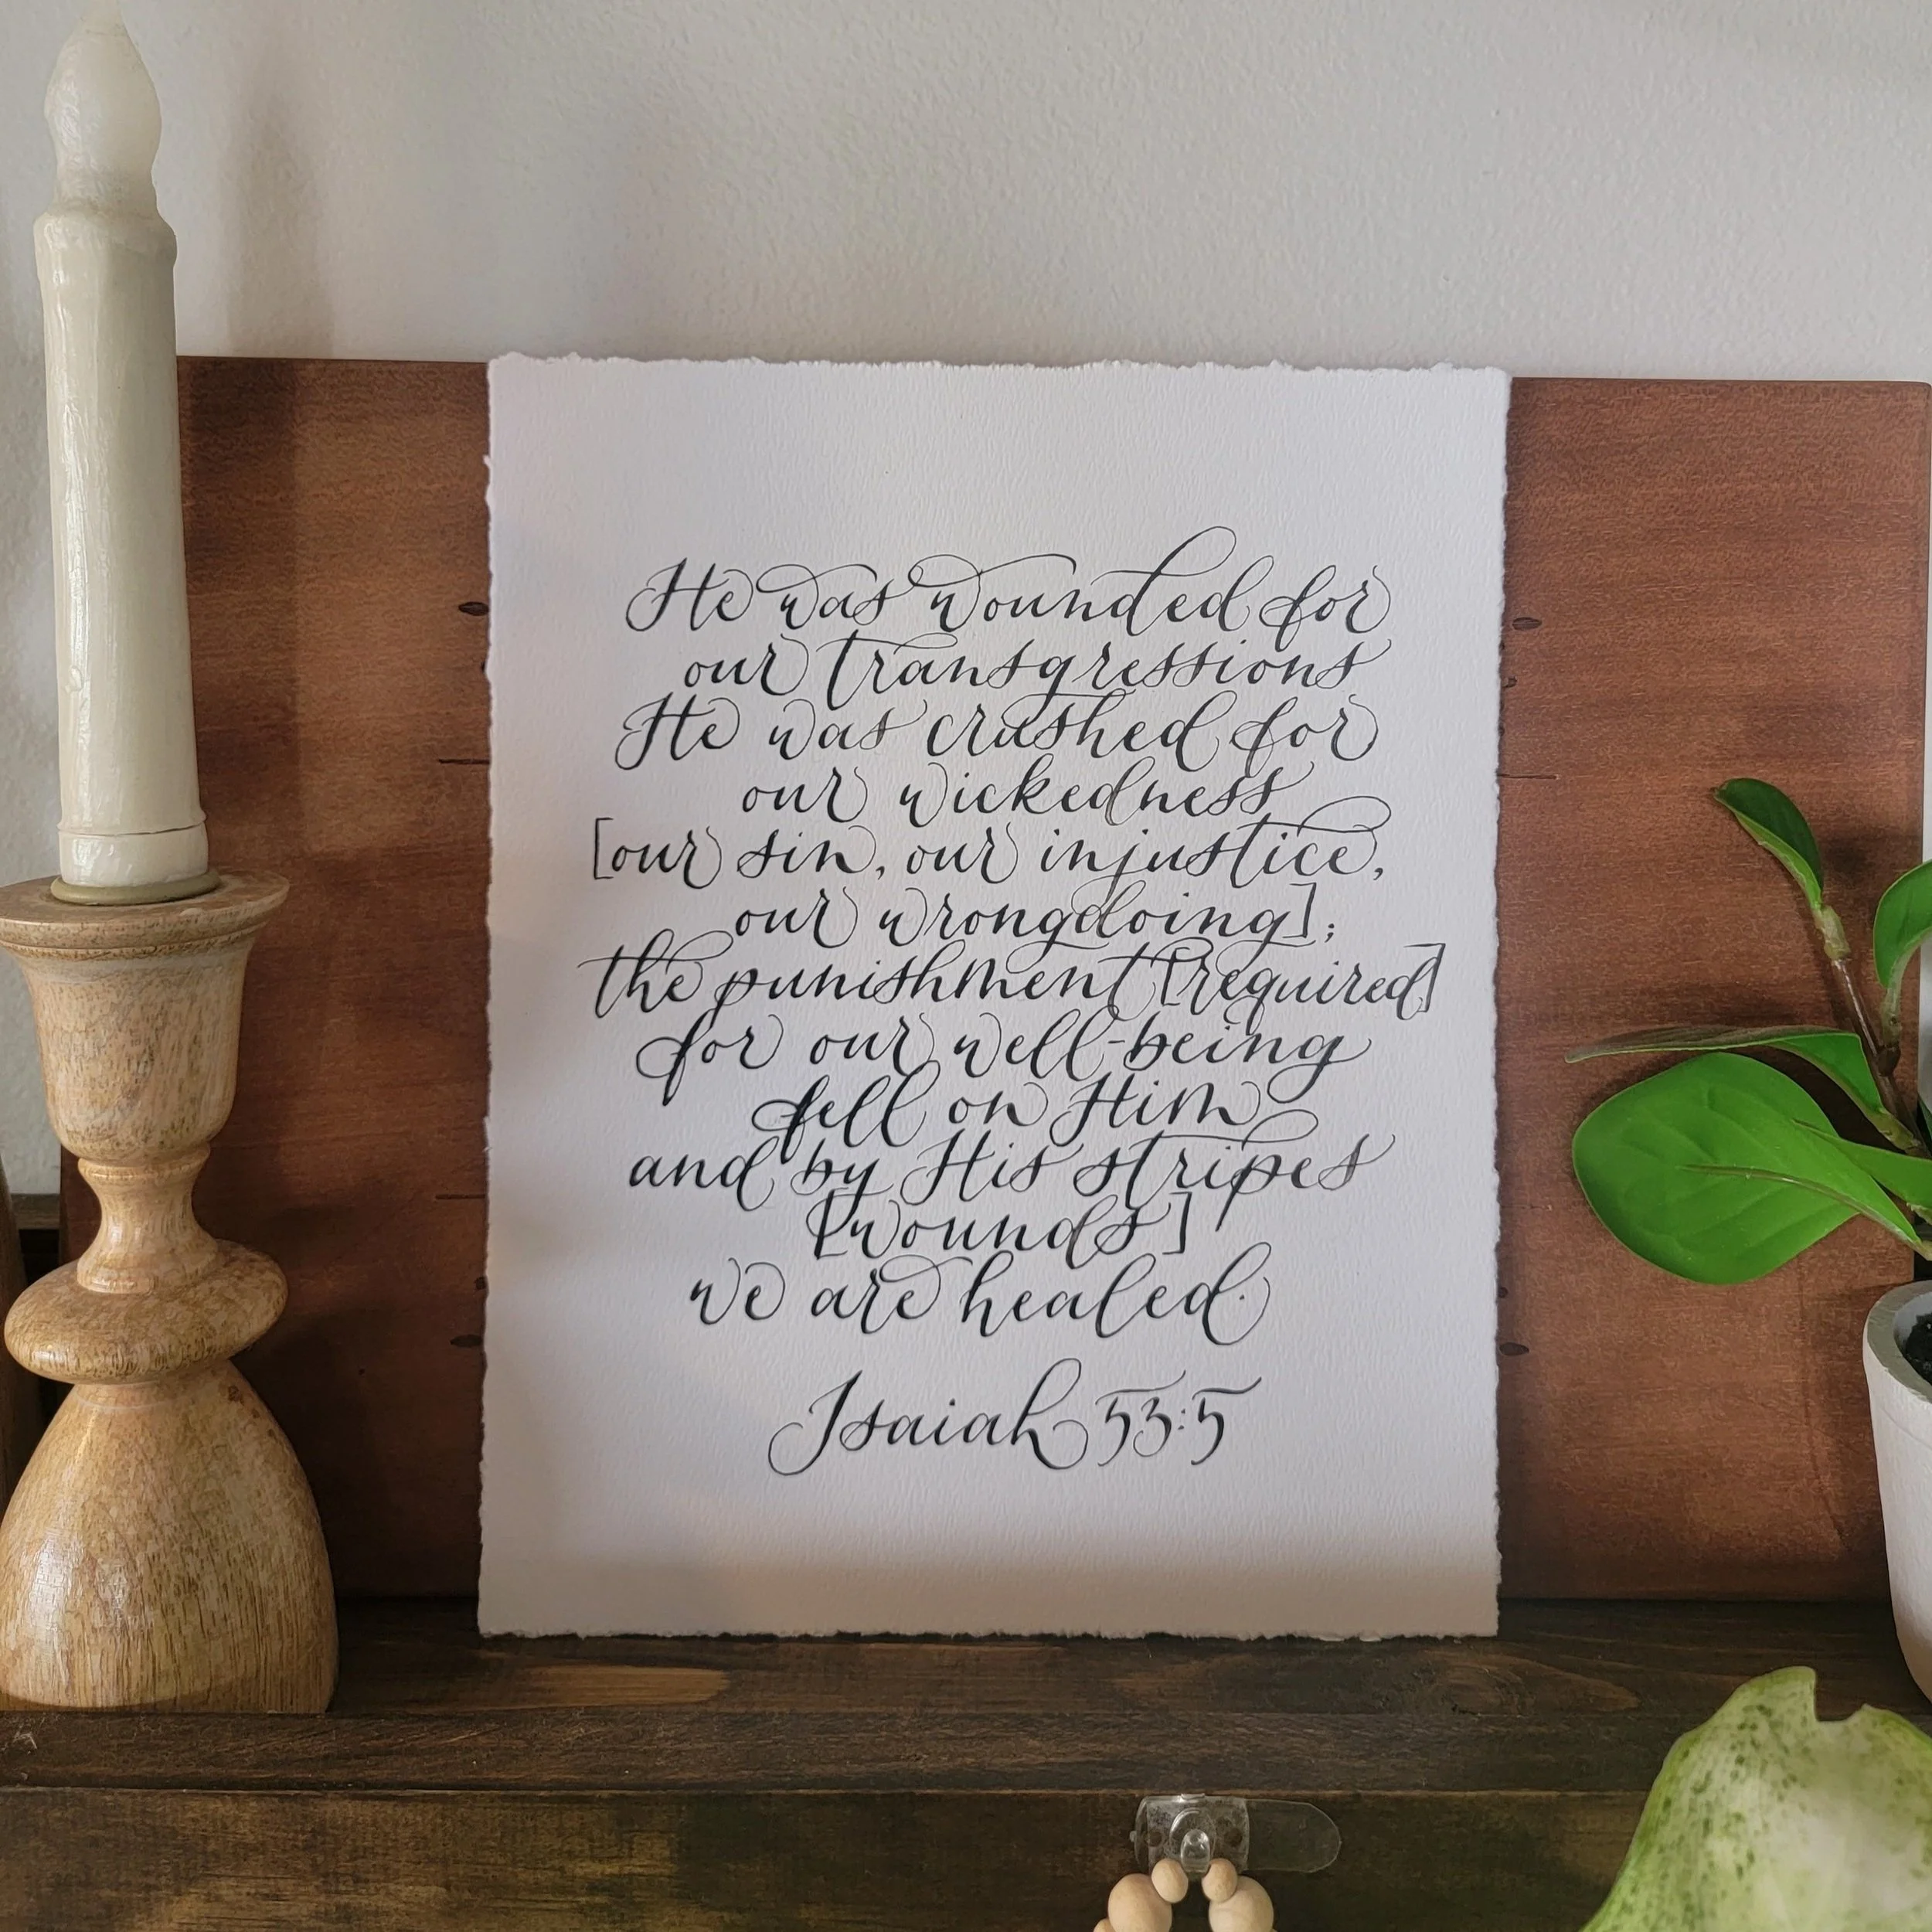 He was wounded for
our transgressions
He was crushed for
our wickedness
[our sin, our injustice,
our wrongdoing];
the punishment [required]
for our well-being
fell on Him
and by His stripes
[wounds]
we are healed.
Isaiah 53:5